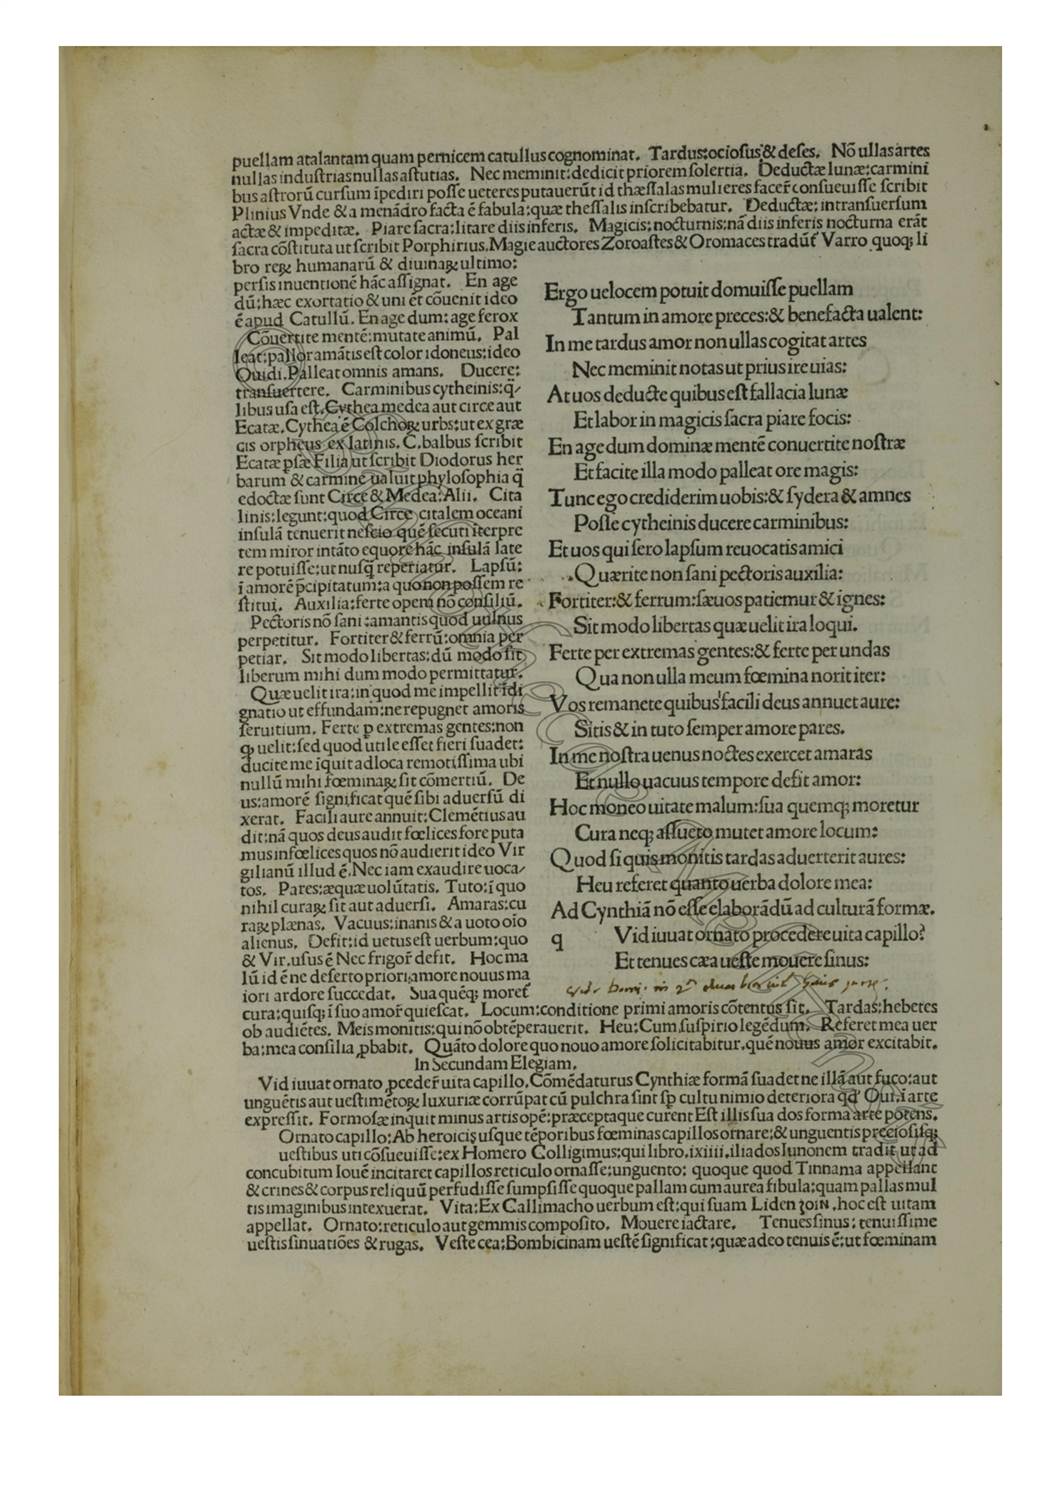 puellam atalantam quam pernicem catullus cognominat. Tardus:ociosus & deses. Nõ ullas artes
nullas industrias nullas astutias. Nec meminit:dedicit priorem solertia. Deductæ lunæ:carmini
bus astrorũ cursum ĩpediri posse ueteres putauerũt id thæssalas mulieres facer̃ consueuisse scribit
Plinius Vnde & a menãdro facta ẽ fabula:quæ thessalis inscribebatur. Deductæ:intransuersum
actæ & impeditæ. Piare sacra:litare diis inferis. Magicis:nocturnis:nã diis inferis nocturna erãt
sacra cõstituta ut scribit Porphirius. Magie auctores Zoroastes & Oromaces tradũt Varro quoq; li
bro reꝝ humanarũ & diuinaꝝ ultimo:
persis inuentionẽ hãc assignat. En age
dũ:hæc exortatio & uni ẽt cõuenit ideo
ẽ apud Catullũ. En age dum:age ferox
Cõuertite mentẽ:mutate animũ. Pal
leat:pallor amãtis est color idoneus:ideo
Ouidi. Palleat omnis amans. Ducere:
transuertere. Carminibus cytheinis:q̃/
libus usa est. Cythea medea aut circe aut
Ecatæ. Cythea ẽ Colchoꝝ urbs:ut ex græ
cis orpheus ex latinis. C. balbus scribit
Ecatæ psæ Filia ut scribit Diodorus her
barum & carmine ualuit phylosophia q̃
edoctæ sunt Circe & Medea: Alii. Cita
linis:legunt:quod Circe citalem oceani
insulã tenuerit nescio quẽ secuti ĩterpre
tem miror intãto equore hãc insulã late
re potuisse:ut nusq̃ reperiatur. Lapsũ:
ĩ amorẽ p̃cipitatum:a quo non possem re
stitui. Auxilia:ferte opem nõ consiliũ.
Pectoris nõ sani:amantis quod uulnus
perpetitur. Fortiter & ferrũ:omnia per
petiar. Sit modo libertas:dũ modo sit
liberum mihi dum modo permittatur.
Quæ uelit ira:in quod me impellit ĩdi
gnatio ut effundam:ne repugnet amoris
seruitium. Ferte ꝑ extremas gentes:non
ꝙ uelit:sed quod utile esset fieri suadet:
ducite me ĩquit ad loca remotissima ubi
nullũ mihi fœminaꝝ sit cõmertiũ. De
us:amorẽ significat quẽ sibi aduersũ di
xerat. Facili aure annuit:Clemẽtius au
dit:nã quos deus audit fœlices fore puta
mus infœlices quos nõ audierit ideo Vir
gilianũ illud ẽ. Nec iam exaudire uoca/
tos. Pares:æquæ uolũtatis. Tuto:ĩ quo
nihil curaꝝ sit aut aduersi. Amaras:cu
raꝝ plænas. Vacuus:inanis & a uoto oĩo
alienus. Defit:id uetus est uerbum:quo
& Vir. usus ẽ Nec frigor̃ defit. Hoc ma
lũ id ẽ ne deserto priori amore nouus ma
iori ardore succedat. Sua quẽq; moret̃
Ergo uelocem potuit domuisse puellam
Tantum in amore preces:& benefacta ualent:
In me tardus amor non ullas cogitat artes
Nec meminit notas ut prius ire uias:
At uos deducte quibus est fallacia lunæ
Et labor in magicis sacra piare focis:
En age dum dominæ mentẽ conuertite nostræ
Et facite illa modo palleat ore magis:
Tunc ego crediderim uobis:& sydera & amnes
Posse cytheinis ducere carminibus:
Et uos qui sero lapsum reuocatis amici
Quærite non sani pectoris auxilia:
Fortiter:& ferrum:sæuos patiemur & ignes:
Sit modo libertas quæ uelit ira loqui.
Ferte per extremas gentes:& ferte per undas
Qua non ulla meum fœmina norit iter:
Vos remanete quibus facili deus annuet aure:
Sitis & in tuto semper amore pares.
In me nostra uenus noctes exercet amaras
Et nullo uacuus tempore defit amor:
Hoc moneo uitate malum:sua quemq; moretur
Cura neq; assueto mutet amore locum:
Quod si quis monitis tardas aduerterit aures:
Heu referet quanto uerba dolore mea:
Ad Cynthiã nõ esse elaborãdũ ad culturã formæ.
q Vid iuuat ornato procedere uita capillo?
Et tenues cæa ueste mouere sinus:
cura:quisq; ĩ suo amor̃ quiescat. Locum:conditione primi amoris cõtentus sit. Tardas:hebetes
ob audiẽtes. Meis monitis:qui nõ obtẽperauerit. Heu:Cum suspirio legẽdum. Referet mea uer
ba:mea consilia ꝓbabit. Quãto dolore quo nouo amore solicitabitur.quẽ nouus amor excitabit.
In Secundam Elegiam.
Vid iuuat ornato ꝓceder̃ uita capillo. Cõmẽdaturus Cynthiæ formã suadet ne illã aut fuco:aut
unguẽtis aut uestimẽtoꝝ luxuriæ corrũpat cũ pulchra sint sꝑ cultu nimio deteriora qđ Oui. ĩ arte
expressit. Formosæ inquit minus artis opẽ:præceptaque curent Est illis sua dos forma arte potens.
Ornato capillo:Ab heroicis usque tẽporibus fœminas capillos ornare:& unguentis preciosisq;
uestibus uti cõsueuisse:ex Homero Colligimus:qui libro.ixiiii.iliados Iunonem tradit ut ad
concubitum Iouẽ incitaret capillos reticulo ornasse:unguento: quoque quod Tinnama appellant
& crines & corpus reliquũ perfudisse sumpsisse quoque pallam cum aurea fibula:quam pallas mul
tis imaginibus intexuerat. Vita:Ex Callimacho uerbum est:qui suam Liden ζοιν.hoc est uitam
appellat. Ornato:reticulo aut gemmis composito. Mouere iactare. Tenues sinus:tenuissime
uestis sinuatiões & rugas. Veste cea:Bombicinam uestẽ significat:quæ adeo tenuis ẽ:ut fœminam